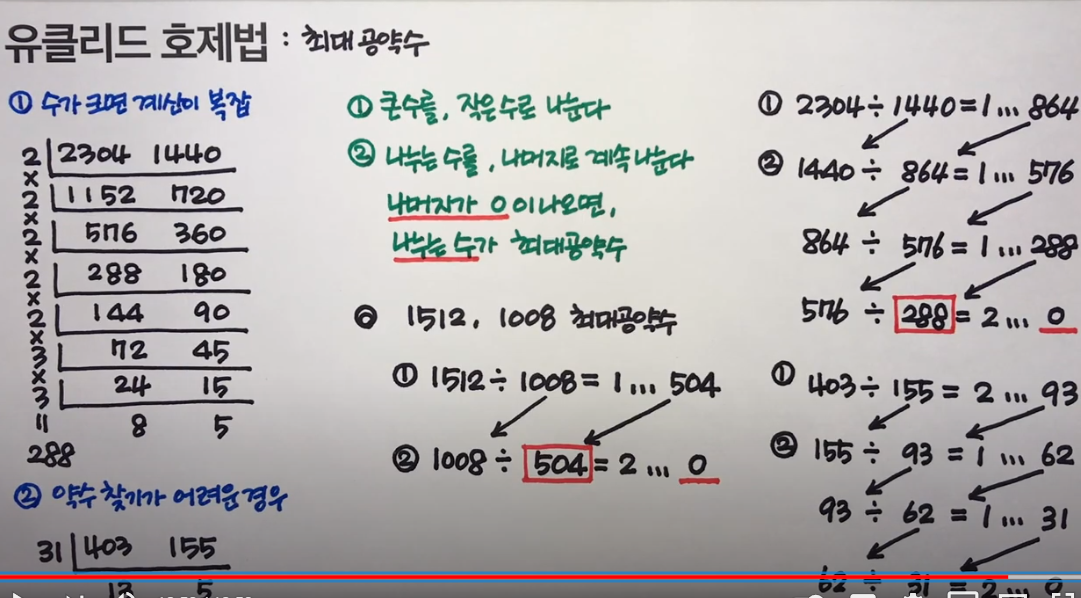 유클리드 호제법 : 최대공약수
① 수가 크면 계산이 복잡
2 2304 1440
×
2 1152 720
×
2 576 360
×
2 288 180
×
2 144 90
×
3 72 45
×
3 24 15
= 8 5
288
② 약수 찾기가 어려운 경우
31 403 155
13 5
① 큰수를, 작은수로 나눈다
② 나누는 수를, 나머지로 계속 나눈다
나머지가 0이 나오면,
나누는 수가 최대공약수
◎ 1512, 1008 최대공약수
① 1512 ÷ 1008 = 1 ... 504
② 1008 ÷ 504 = 2 ... 0
① 2304 ÷ 1440 = 1 ... 864
② 1440 ÷ 864 = 1 ... 576
864 ÷ 576 = 1 ... 288
576 ÷ 288 = 2 ... 0
① 403 ÷ 155 = 2 ... 93
② 155 ÷ 93 = 1 ... 62
93 ÷ 62 = 1 ... 31
62 ÷ 31 = 2 ... 0